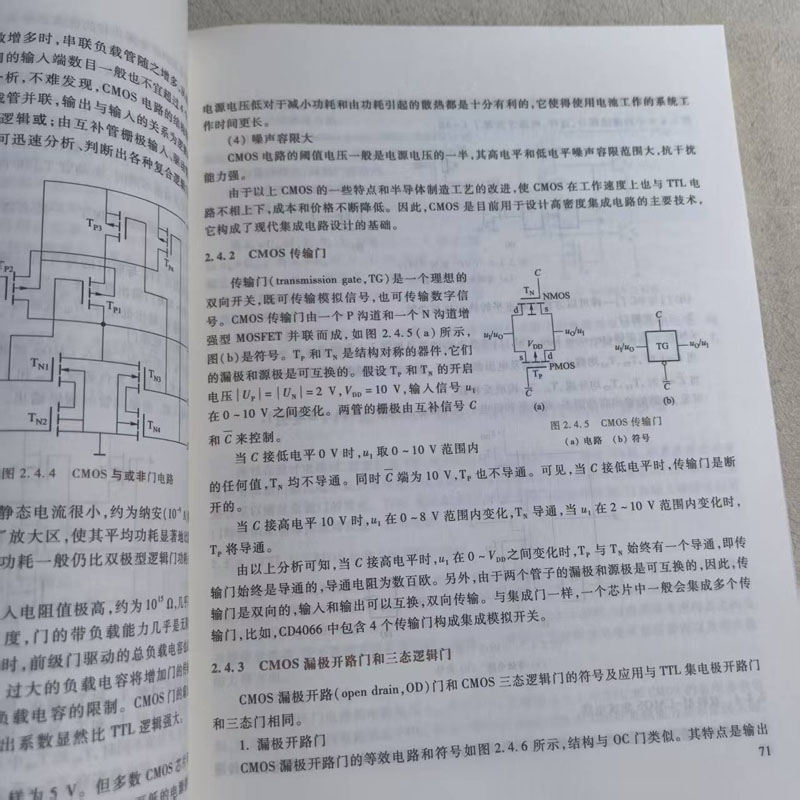 数增多时,串联负载管随之增多,
门的输入端数目一般也不宜超过
析,不难发现,CMOS 电路的结构
成管并联,输出与输入的关系为
逻辑或;由互补管栅极输入、
可迅速分析、判断出各种复合逻辑
T_P3
T_P2
T_P1
T_N1
T_N3
T_N2
T_N4
图 2.4.4 CMOS 与或非门电路
静态电流很小,约为纳安(10
放大区,使其平均功耗显著地
功耗一般仍比双极型逻辑门功耗
人电阻值极高,约为 10^15 Ω,几乎
度,门的带负载能力几乎是无
时,前级门驱动的总负载电容
过大的负载电容将增加门的
负载电容的限制。CMOS门的
出系数显然比 TTL 逻辑强大。
样为 5 V。但多数 CMOS
低的电源
电源电压低对于减小功耗和由功耗引起的散热都是十分有利的,它使得使用电池工作的系统工
作时间更长。
(4) 噪声容限大
CMOS 电路的阈值电压一般是电源电压的一半,其高电平和低电平噪声容限范围大,抗干扰
能力强。
由于以上 CMOS 的一些特点和半导体制造工艺的改进,使 CMOS 在工作速度上也与 TTL 电
路不相上下,成本和价格不断降低。因此,CMOS 是目前用于设计高密度集成电路的主要技术,
它构成了现代集成电路设计的基础。
2.4.2 CMOS 传输门
传输门(transmission gate,TG)是一个理想的
双向开关,既可传输模拟信号,也可传输数字信
号。CMOS 传输门由一个 P 沟道和一个 N 沟道增
强型 MOSFET 并联而成,如图 2.4.5(a)所示,
图(b)是符号。T_P 和 T_N 是结构对称的器件,它们
的漏极和源极是可互换的。假设 T_P 和 T_N 的开启
电压|U_P|=|U_N|=2 V,V_DD=10 V,输入信号 u_I
在 0~10 V 之间变化。两管的栅极由互补信号 C
和 C̅ 来控制。
C
T_N
NMOS
d
s
u_I/u_O
u_O/u_I
V_DD
s
d
PMOS
T_P
C̅
(a)
C
u_I/u_O
TG
u_O/u_I
C̅
(b)
图 2.4.5 CMOS 传输门
(a) 电路 (b) 符号
当 C 接低电平 0 V 时,u_I 取 0~10 V 范围内
的任何值,T_N 均不导通。同时 C̅ 端为 10 V,T_P 也不导通。可见,当 C 接低电平时,传输门是断
开的。
当 C 接高电平 10 V 时,u_I 在 0~8 V 范围内变化,T_N 导通,当 u_I 在 2~10 V 范围内变化时,
T_P 将导通。
由以上分析可知,当 C 接高电平时,u_I 在 0~V_DD 之间变化时,T_P 与 T_N 始终有一个导通,即传
输门始终是导通的,导通电阻为数百欧。另外,由于两个管子的漏极和源极是可互换的,因此,传
输门是双向的,输入和输出可以互换,双向传输。与集成门一样,一个芯片中一般会集成多个传
输门,比如,CD4066 中包含 4 个传输门构成集成模拟开关。
2.4.3 CMOS 漏极开路门和三态逻辑门
CMOS 漏极开路(open drain,OD)门和 CMOS 三态逻辑门的符号及应用与 TTL 集电极开路门
和三态门相同。
1. 漏极开路门
CMOS 漏极开路门的等效电路和符号如图 2.4.6 所示,结构与 OC 门类似。其特点是输出
71